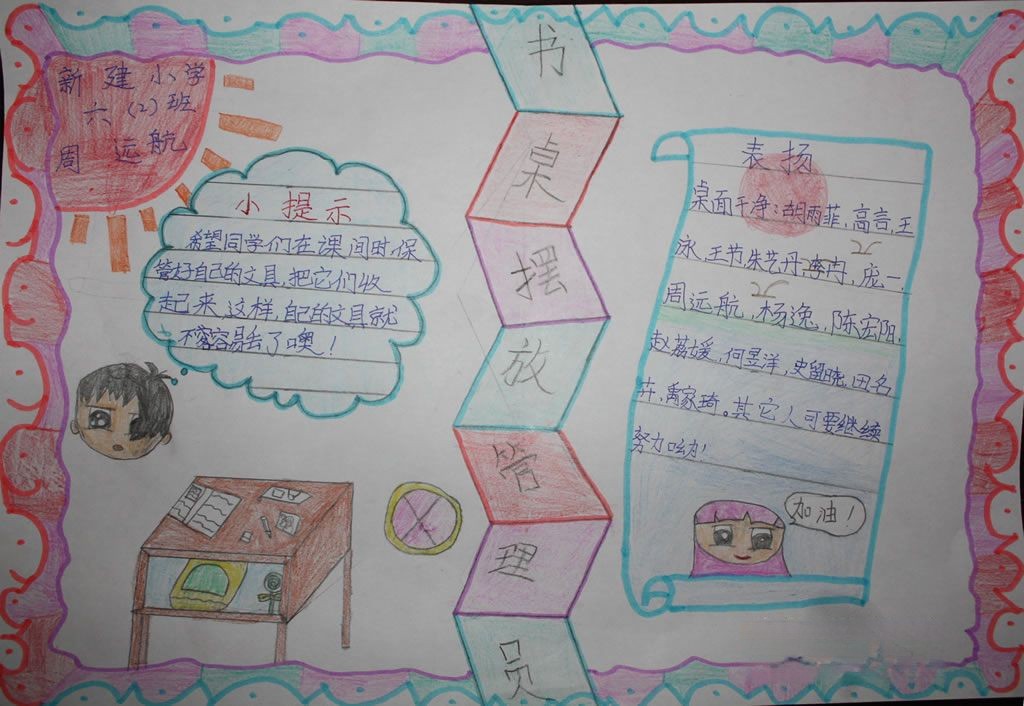 新建小学
六(2)班
周远航
小提示
希望同学们在课间时,保
管好自己的文具,把它们收
起来,这样,自己的文具就
不容易丢了噢!
书
桌
摆
放
管
理
员
表扬
桌面干净:胡雨菲,高言,王
泳,王节,朱艺丹,李冉,庞一,
元
元
周远航,杨逸,陈宏阳,
赵荔媛,何昱洋,史留晓,田名
卉,禹家琦。其它人可要继续
努力呦!
加油!